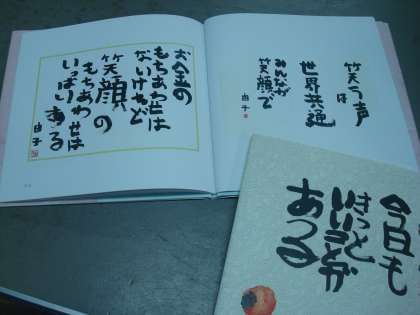 笑う声
は
世界共通
みんなが
笑顔で
由子
お金の
もちあわせは
ないけれど
笑顔の
もちあわせは
いっぱいある
由子
今日も
きっと
いいことが
ある